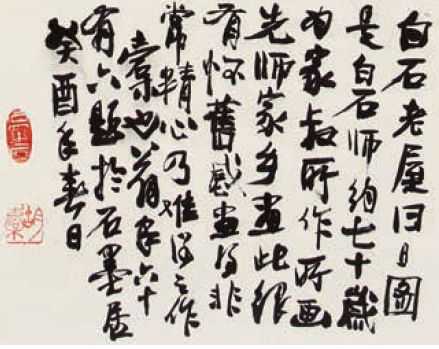 白石老屋旧日圖
是白石师约七十歲
为家叔所作所画
先师家乡畫此很
有怀舊感畫得非
常精心乃难得之作
橐也翁年六十
有六题於石墨居
癸酉年春日
胡橐